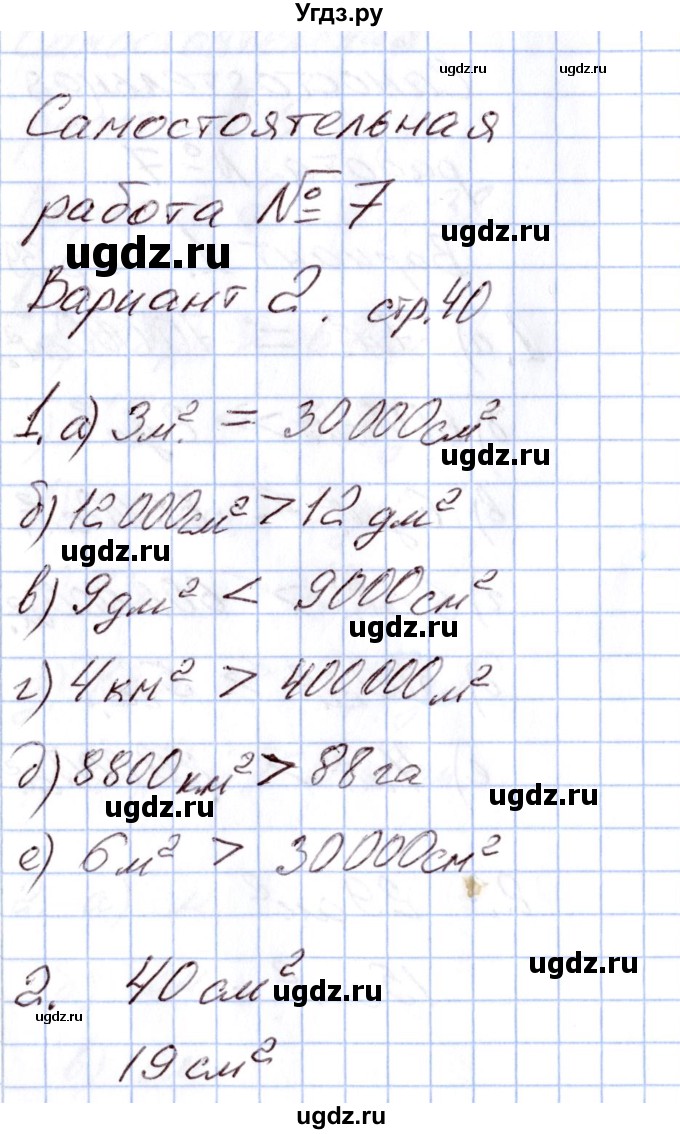 Угдз.ру
ugdz.ru
ugdz.ru
Самостоятельная
работа № 7
ugdz.ru
ugdz.ru
Вариант 2. стр.40
1. а) 3м² = 30000см²
ugdz.ru
б) 12000см² > 12дм²
ugdz.ru
в) 9дм² < 9000см²
ugdz.ru
г) 4км² > 400000м²
д) 8800км² > 88га
ugdz.ru
ugdz.ru
е) 6м² > 30000см²
2. 40см²
ugdz.ru
ugdz.ru
ugdz.ru
19см²
ugdz.ru